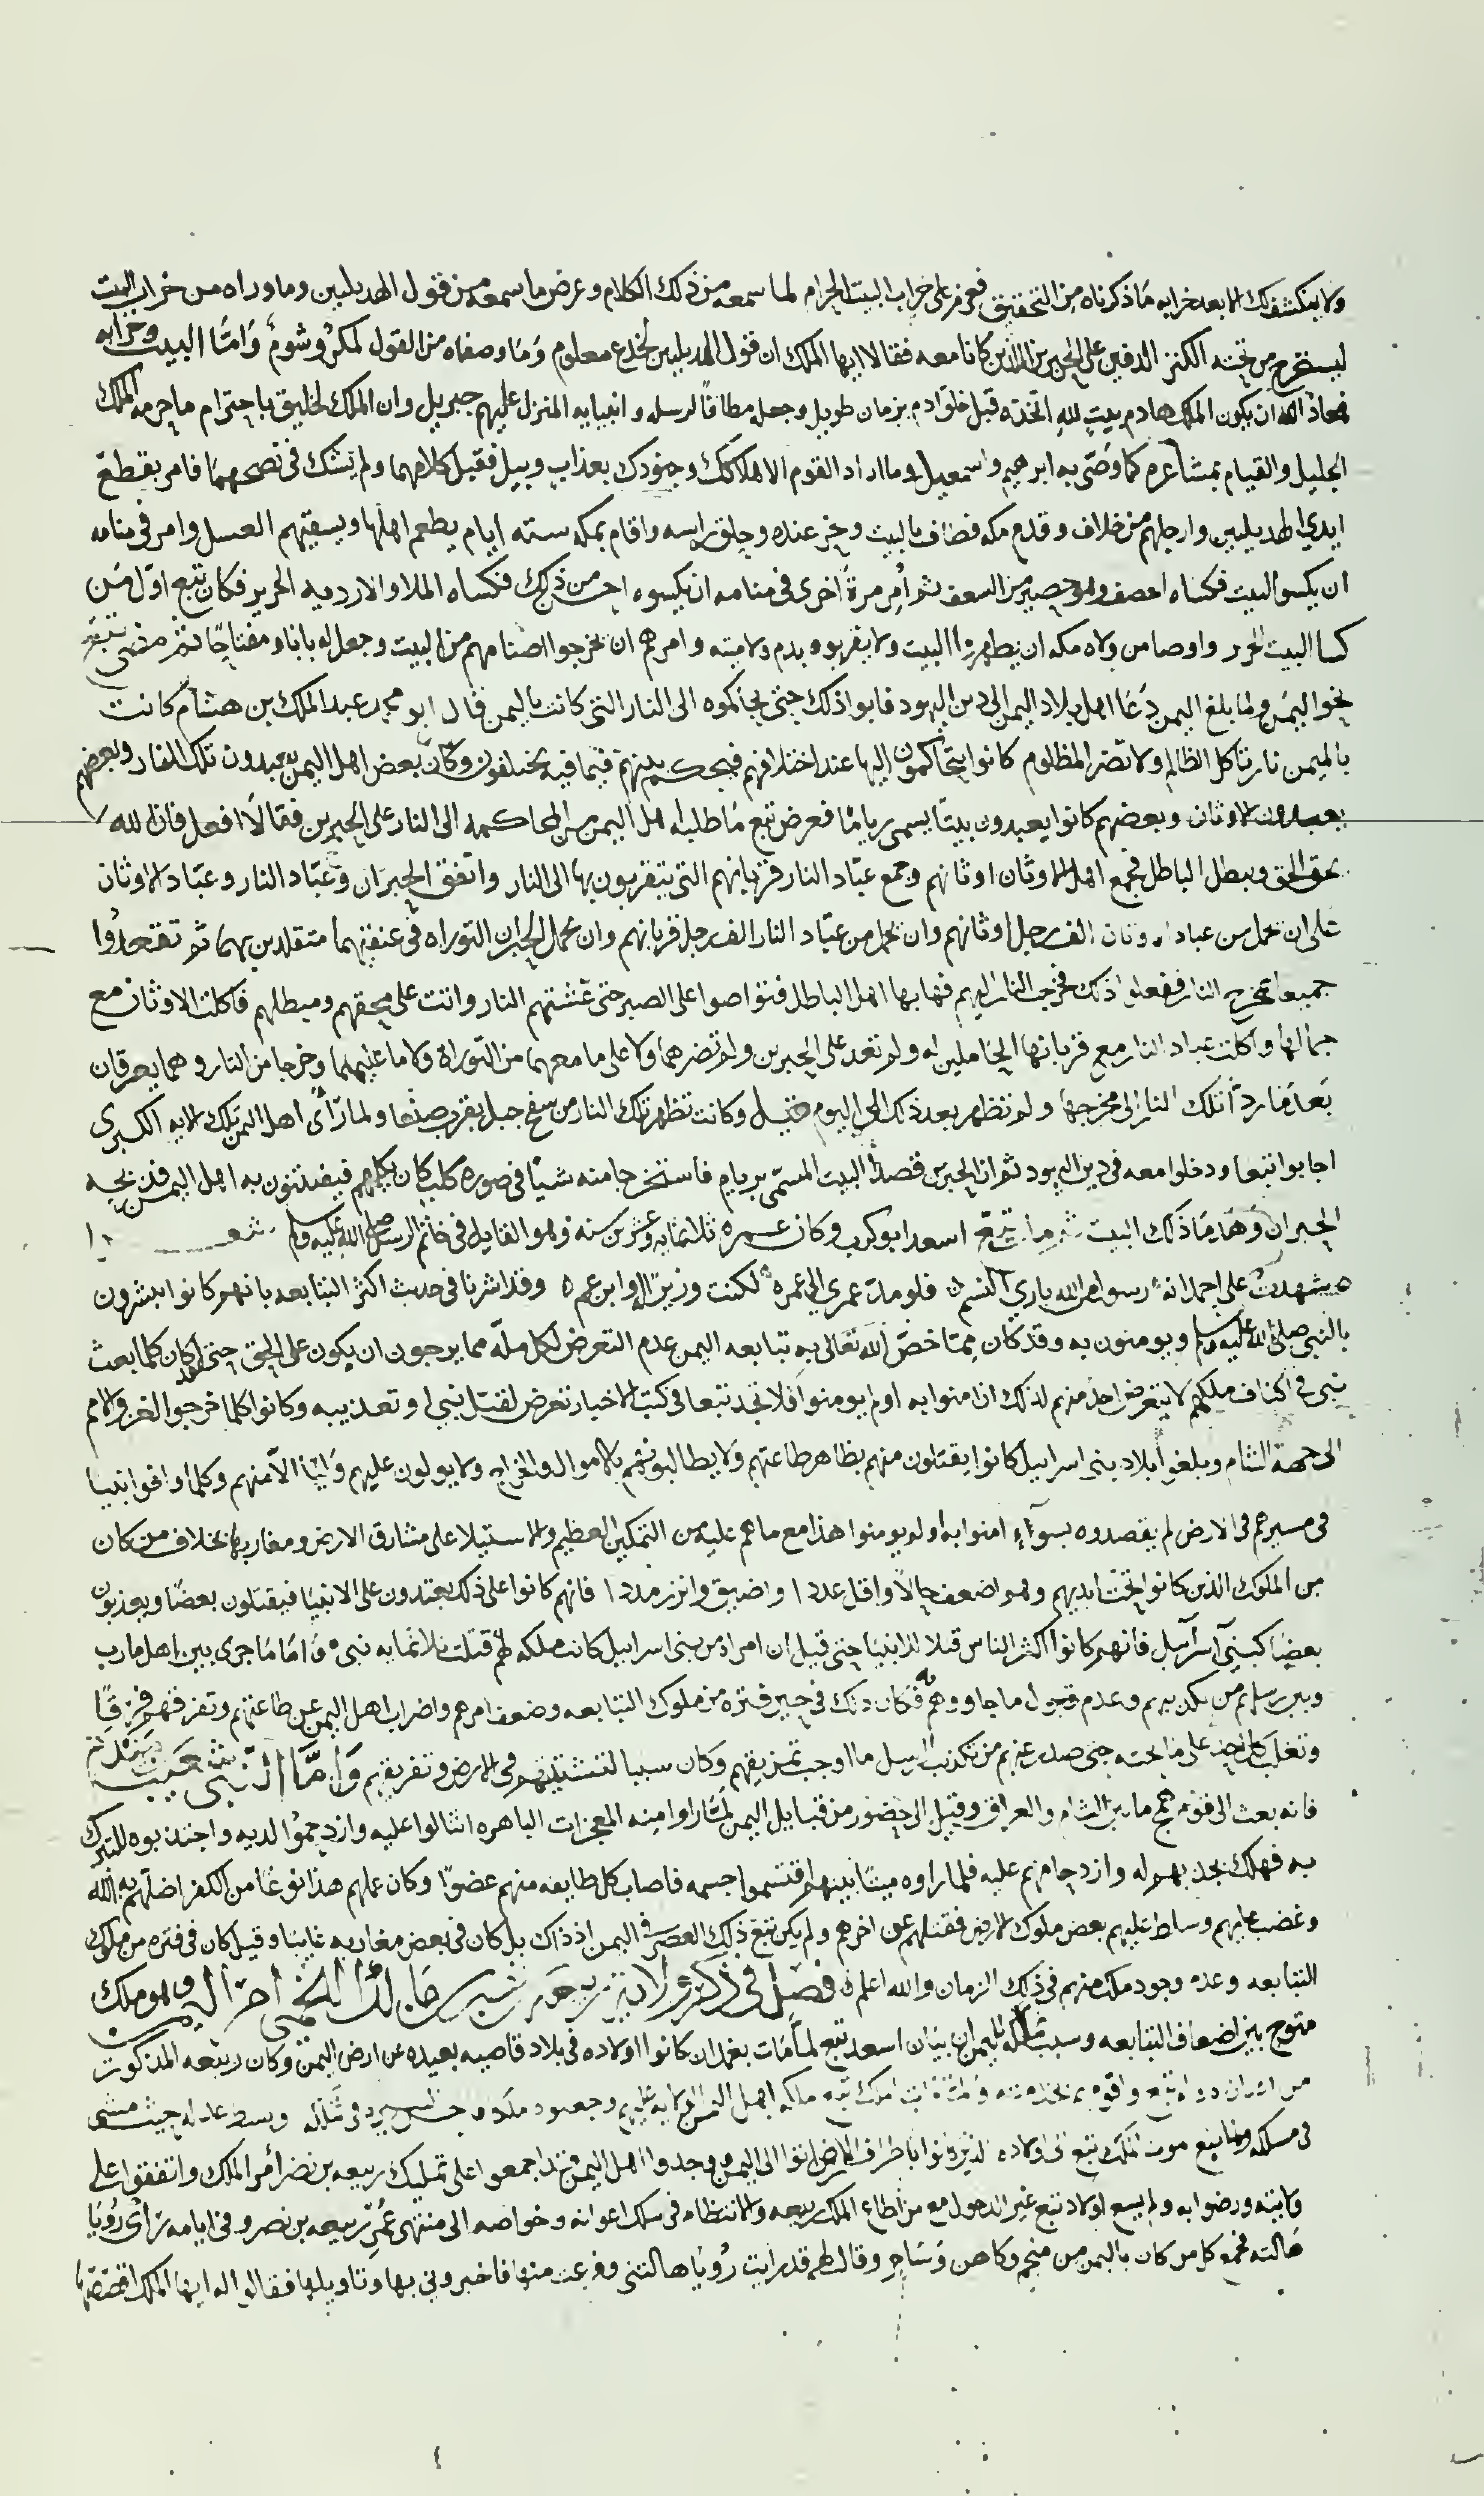 ولا ينكشف لك الا بعد خرابه ما ذكرناه من التحقيق فعزم على خراب البيت الحرام لما سمعه من ذلك الكلام وعرض ما سمعه من قول الهديليين وما وراه من خراب البيت
ليستخرج من تحته الكنز الدفين على الحبرين الذين كانا معه فقالا ايها الملك ان قول الهديليين لخدع معلوم وما وصفاه من القول لمكر وشوم واما البيت وخرابه
فمعاذ الله ان يكون الملك هادم بيت لله اتخذه قبل خلق ادم بزمان طويل وجعله مطافا لرسله وانبيايه المنزل عليهم جبريل وان الملك لخليق باحترام ما حرمه الملك
الجليل والقيام بمشاعره كما وصى به ابرهيم واسمعيل وما اراد القوم الا هلاكك وجنودك بعذاب وبيل فقبل كلامهما ولم يشك في نصحهما فامر بقطع
ايدي الهديليين وارجلهم من خلاف وقدم مكه فطاف بالبيت ونحر عنده وحلق راسه واقام بمكه سته ايام يطعم اهلها ويسقيهم العسل وامر في منامه
ان يكسو البيت فكساه الخصف وهو حصير من السعف ثم أمر مرة أخرى في منامه ان يكسوه احسن من ذلك فكساه الملا والارديه الحرير فكان تبع اول من
كسا البيت الحرير واوصا من ولاه مكه ان يطهروا البيت ولا يقربوه بدم ولا ميته وامرهم ان يخرجوا اصنامهم من البيت وجعل له بابا ومفتاحا ثم مضى تبع
نحو اليمن ولما بلغ اليمن دعا اهل بلاد اليمن الى دين اليهود فابوا ذلك حتى يحاكموه الى النار التي كانت باليمن قال ابو محمد عبد الملك بن هشام كانت
باليمن نار تاكل الظالم ولا تضر المظلوم كانوا يتحاكمون اليها عند اختلافهم فيحكم بينهم فيما فيه يختلفون وكان بعض اهل اليمن يعبدون تلك النار وبعضهم
يعبدون الاوثان وبعضهم كانوا يعبدون بيتا يسمى رياما فعرض تبع ما طلبه اهل اليمن من المحاكمه الى النار على الحبرين فقالا افعل فان الله
يحق الحق ويبطل الباطل فجمع اهل الاوثان اوثانهم وجمع عباد النار قربانهم التي يتقربون بها الى النار واتفق الحبران وعباد النار وعباد الاوثان
على ان يحمل من عباد الاوثان الف رجل اوثانهم وان يحمل من عباد النار الف رجل قربانهم وان يحمل الحبران التوراه في عنقيهما متقلدين بهما ثم تقعدوا
جميعا بمخرج النار ففعلوا ذلك فخرجت النار اليهم فهابها اهل الباطل فتواصوا على الصبر حتى غشتهم النار واتت على محقهم ومبطلهم فاكلت الاوثان مع
حمالها واكلت عباد النار مع قربانها الحاملين له ولم تعد على الحبرين ولم تضرهما ولا على ما معهما من التوراة ولا ما عليهما وخرجا من النار وهما يعرقان
بعد ما ردا تلك النار الى مخرجها ولم تظهر بعد ذلك الى اليوم قيل وكانت تظهر تلك النار من سفح جبل بقرب صنعا ولما رأى اهل اليمن تلك الايه الكبرى
اجابوا تبعا ودخلوا معه في دين اليهود ثم ان الحبرين قصدا البيت المسمى بريام فاستخرجا منه شيا في صوره كلب كان يكلمهم فيفتتنون به اهل اليمن فذبحه
الحبران وهدما ذلك البيت ثم مات تبع اسعد ابو كرب وكان عمره ثلثمايه وعشرين سنه وهو القايل في خاتم الرسل صلى الله عليه وسلم شعر
شهدت على احمد انه رسول من الله باري النسم فلو مد عمري الى عمره لكنت وزيرا له وابن عم وقد اشرنا في حديث اكثر التبابعه بانهم كانوا يبشرون
بالنبي صلى الله عليه وسلم ويومنون به وقد كان مما خص الله تعالى به تبابعه اليمن عدم التعرض لكل مله مما يرجون ان يكون على الحق حتى لقد كان كلما بعث
نبي في اكناف ملكهم لا يتعرض احد منهم لذلك ان امنوا به او لم يومنوا فلا تجد تبعا في كتب الاخبار تعرض لقتل نبي او تعذيبه وكانوا كلما خرجوا لغزو الامم
الى جهة الشام وبلغوا بلاد بني اسرايل كانوا يقتلون منهم بظاهر طاعتهم ولا يطالبونهم بالاموال والخراج ولا يولون عليهم واليا الا منهم وكلما وافوا نبيا
في مسيرهم في الارض لم يقصدوه بسوء امنوا به او لم يومنوا هذا مع ما هم عليه من التمكين العظيم والاستيلا على مشارق الارض ومغاربها بخلاف من كان
من الملوك الذين كانوا تحت ايديهم وهو اضعف حالا واقل عددا واضيق وانزر مددا فانهم كانوا على ذلك يعتدون على الانبيا فيقتلون بعضا ويعذبون
بعضا كبني اسرآيل فانهم كانوا اكثر الناس قتلا للانبيا حتى قيل ان امراة من بني اسرايل كانت ملكه لهم قتلت ثلاثمايه نبي واما ما جرى بين اهل مارب
وبين رسلهم من تكذيبهم وعدم قبول ما جاووهم به فكان ذلك في حين فتره من ملوك التبابعه وضعف امرهم واضراب اهل اليمن عن طاعتهم وتفرقهم فرقا
وتغلب كل احد على ما تحته حتى صدر عنهم من تكذيب الرسل ما اوجب تمزيقهم وكان سببا لتشتيتهم في الارض وتفريقهم واما النبي شعيب
فانه بعث الى قوم همج ما بين الشام والعراق وقيل الى حضور من قبايل اليمن لما راوا منه المعجزات الباهره انثالوا عليه وازدحموا لديه واجتذبوه للتبرك
به فهلك بجذبهم له وازدحامهم عليه فلما راوه ميتا بينهم اقتسموا جسمه فاصاب كل طايفه منهم عضوا وكان عملهم هذا نوعا من الكفر اضلهم به الله
وغضب عليهم وسلط عليهم بعض ملوك الارض فقتلهم عن اخرهم ولم يكن تبع ذلك العصر في اليمن اذ ذاك بل كان في بعض مغازيه غايبا وقيل كان في فتره من ملوك
التبابعه وعدم وجود ملك منهم في ذلك الزمان والله اعلم فصل في ذكر ولاية ربيعه بن نصر اللخمي وهو ملك
متوج بين اضعاف التبابعه وسبب تملكه لليمن ان بنيان اسعد تبع لما مات بغمدان كانوا اولاده في بلاد قاصيه بعيده عن ارض اليمن وكان ربيعه المذكور
في مسلكه ولما بلغ موت الملك تبع الى اولاده الذين كانوا باطراف الارض اتوا الى اليمن فوجدوا اهل اليمن قد اجمعوا على تمليك ربيعه بن نصر أمر الملك واتفقوا على
ولايته ورضوا به ولم يسع اولاد تبع غير الدخول مع من اطاع الملك ربيعه والانتظام في سلك اعوانه وخواصه الى منتهى عمر ربيعه بن نصر وفي ايامه رأى رؤيا
هالته فجمع كل من كان باليمن من منجم وكاهن وساحر وقال لهم قد رايت رؤيا هالتني وفزعت منها فاخبروني بها وتاويلها فقالوا له ايها الملك اقصصها